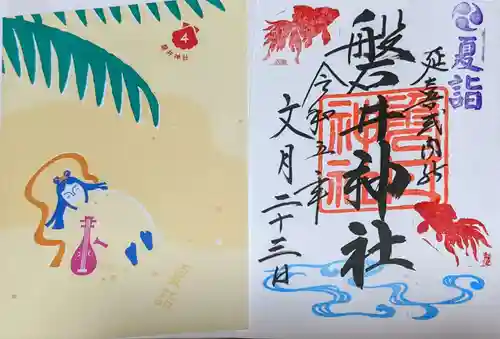 4
夏詣
延喜式内社
磐井神社
令和五年
文月二十三日
磐井神社